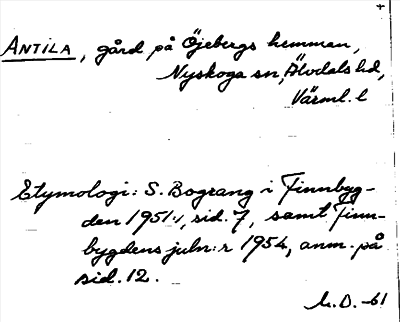 ANTILA, gård på Öjebergs hemman,
Nyskoga sn, Älvdals hd,
Värml. l
Etymologi: S. Bograng i Finnbyg-
den 1951:1, sid. 7, samt Finn-
bygdens julnr 1954, anm. på
sid. 12.
L. D. -61